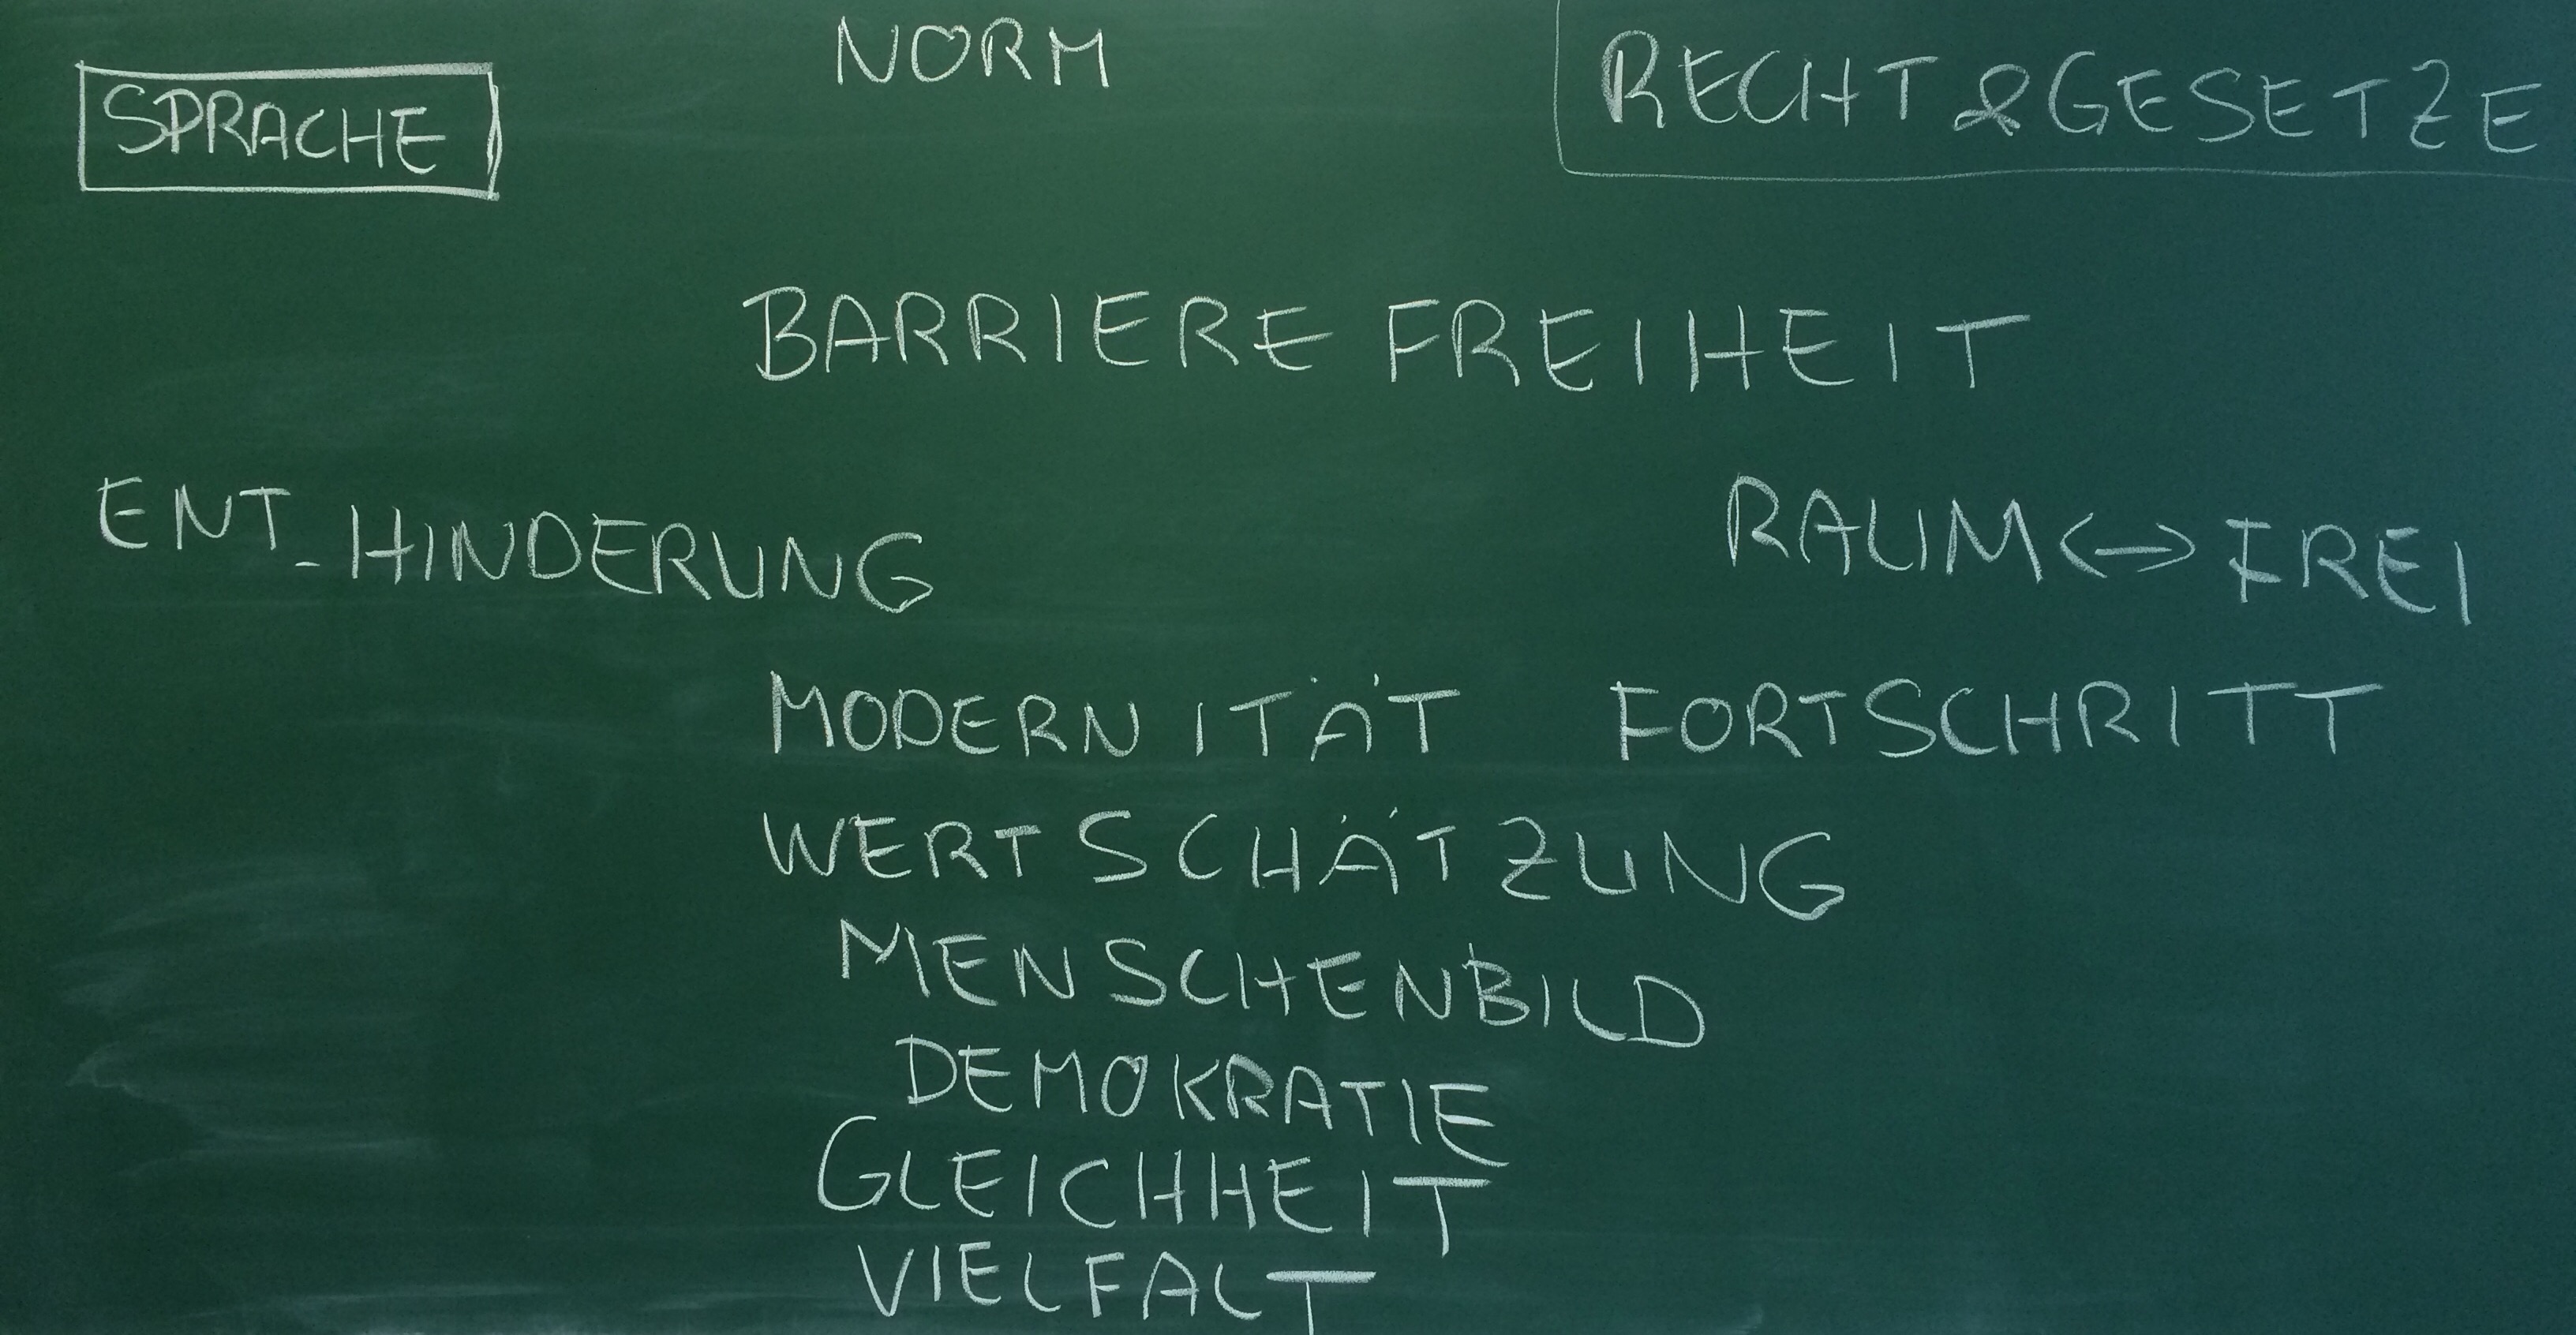 SPRACHE
NORM
RECHT & GESETZE
BARRIERE FREIHEIT
ENT_HINDERUNG
RAUM <-> FREI
MODERNITÄT FORTSCHRITT
WERTSCHÄTZUNG
MENSCHENBILD
DEMOKRATIE
GLEICHHEIT
VIELFALT